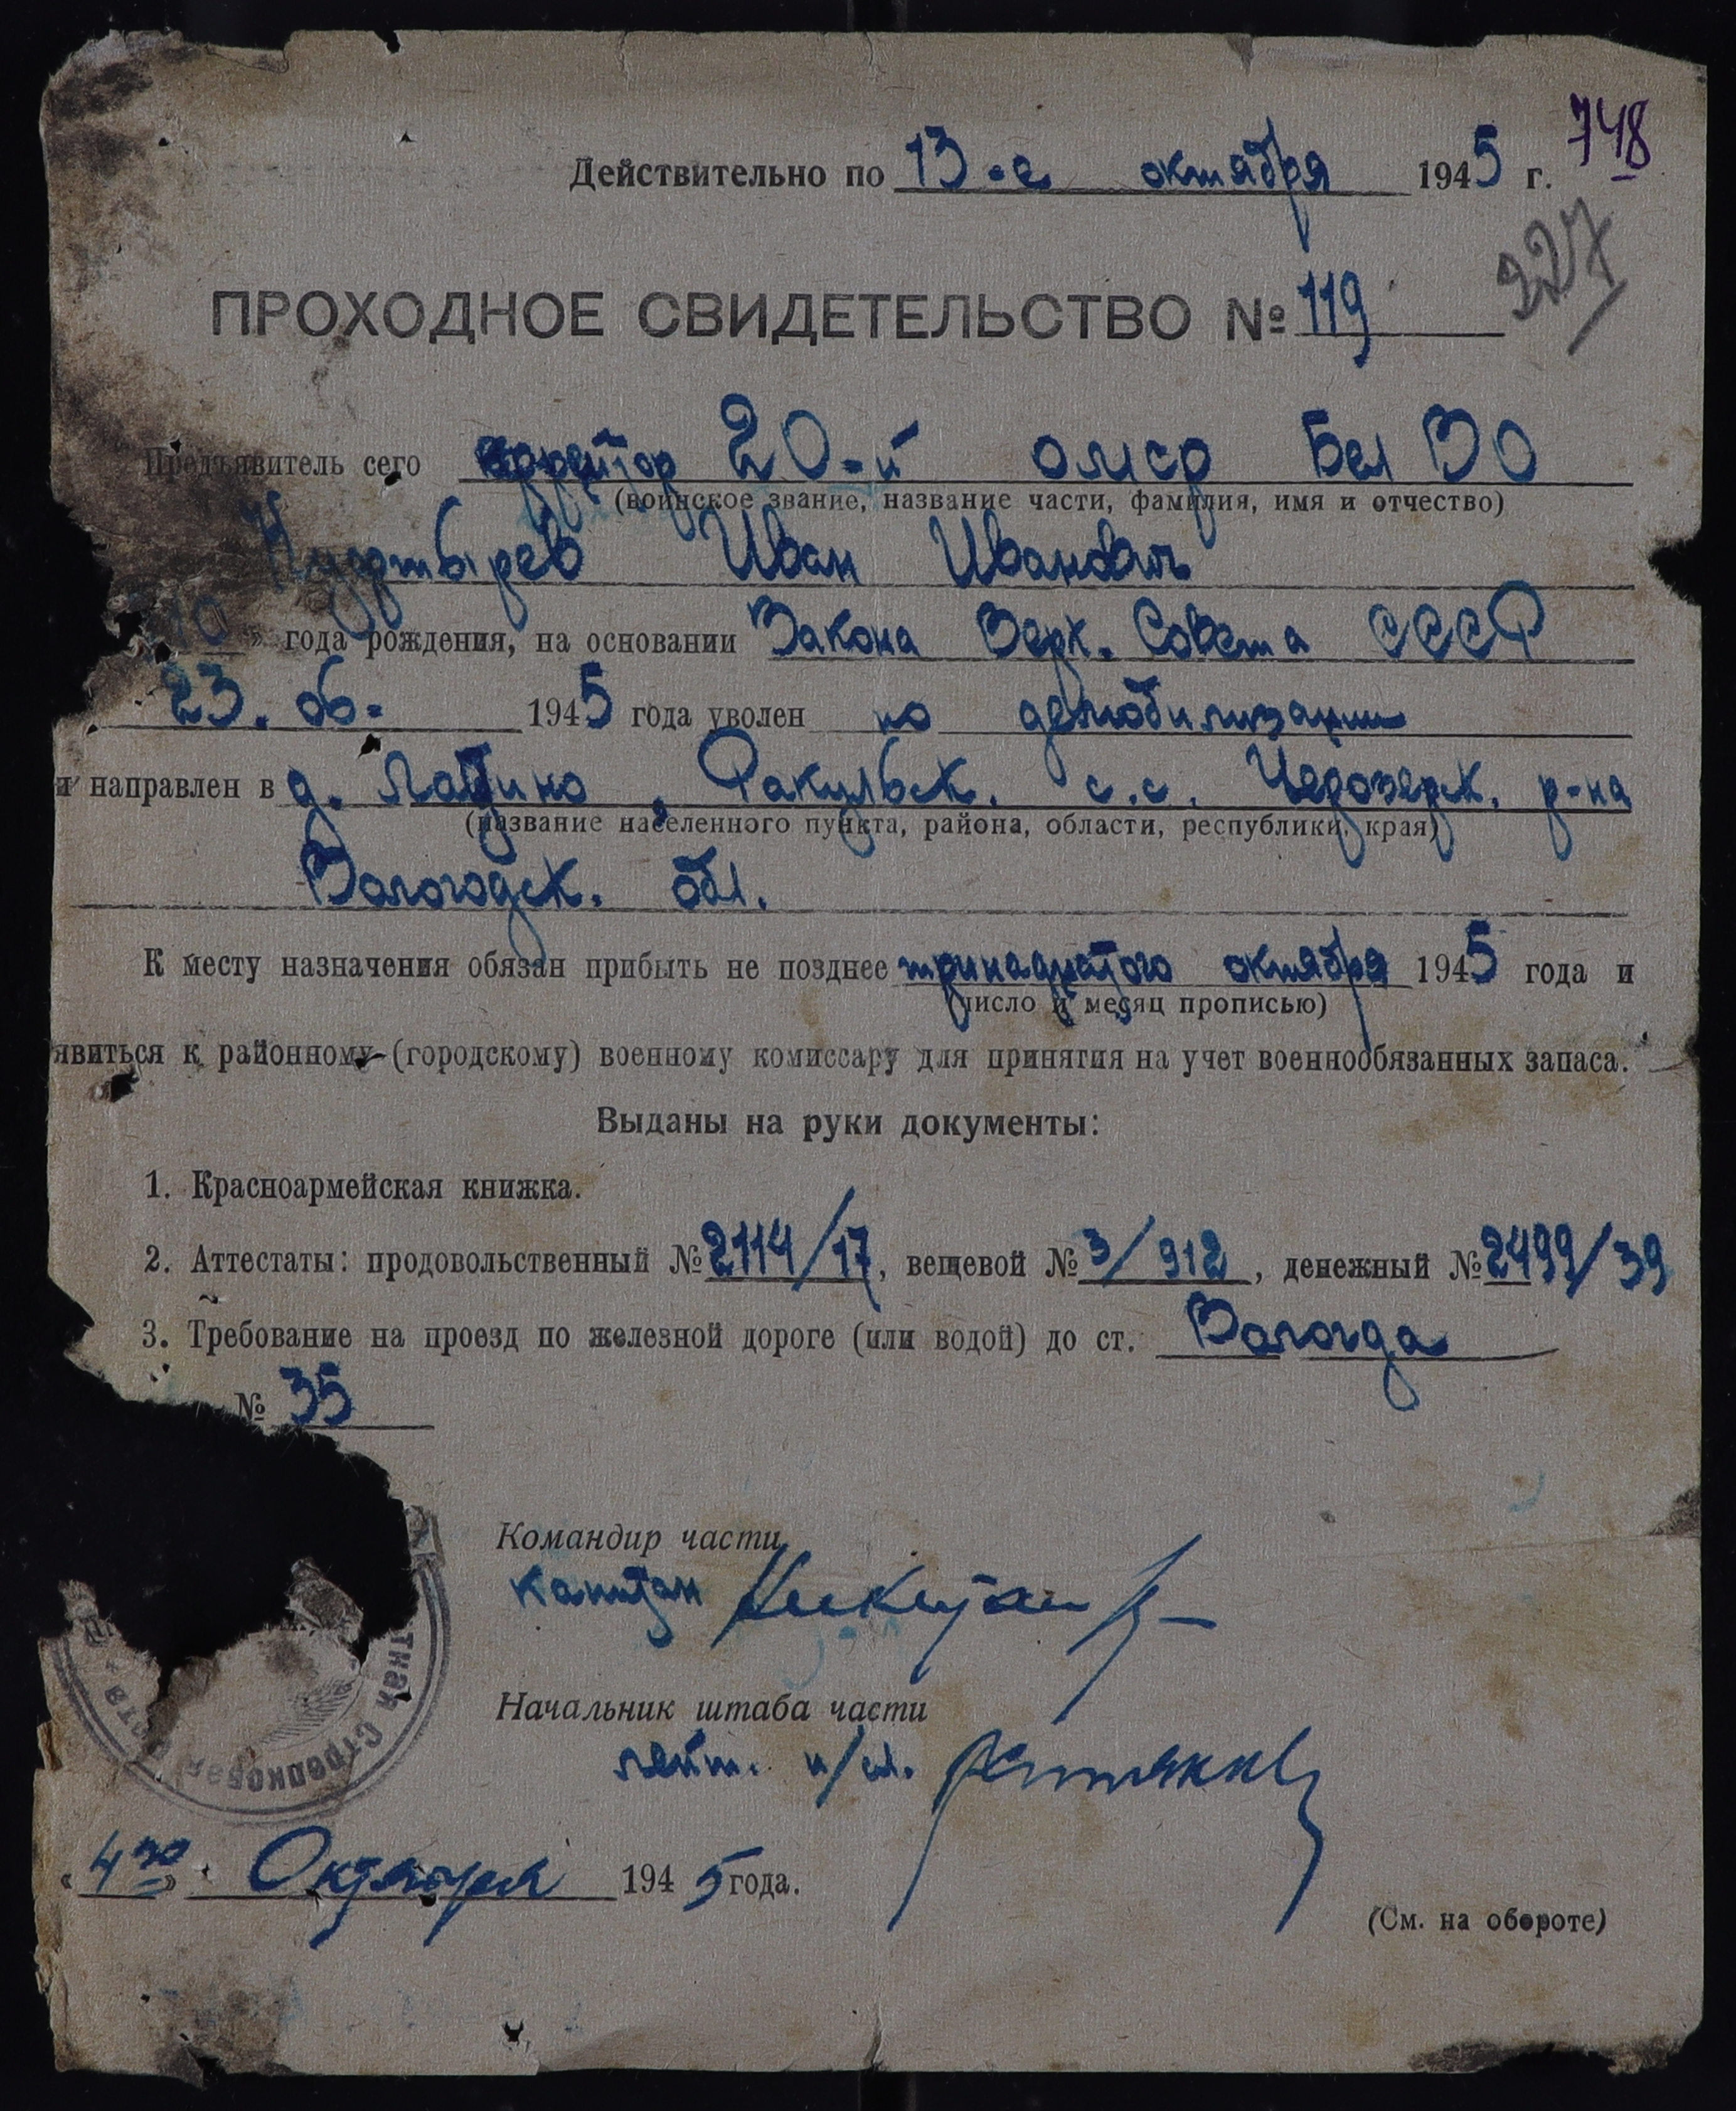 748
Действительно по 13-е октября 1945 г.
227
ПРОХОДНОЕ СВИДЕТЕЛЬСТВО № 119
Предъявитель сего ефрейтор 20-й омср Бел ВО
(воинское звание, название части, фамилия, имя и отчество)
Иван Иванович
10 » года рождения, на основании Закона Верх. Совета СССР
23. 06. 1945 года уволен по демобилизации
и направлен в д. с.с. р-на
(название населенного пункта, района, области, республики, края)
Вологодск. обл.
К месту назначения обязан прибыть не позднее тринадцатого октября 1945 года и
(число и месяц прописью)
явиться к районному (городскому) военному комиссару для принятия на учет военнообязанных запаса.
Выданы на руки документы:
1. Красноармейская книжка.
2. Аттестаты: продовольственный № 2114/17, вещевой № 3/912, денежный № 2499/39
3. Требование на проезд по железной дороге (или водой) до ст. Вологда
№ 35
Командир части
капитан
Начальник штаба части
лейт.
тная стрелковая
«4го» Октября 1945 года.
(См. на обороте)